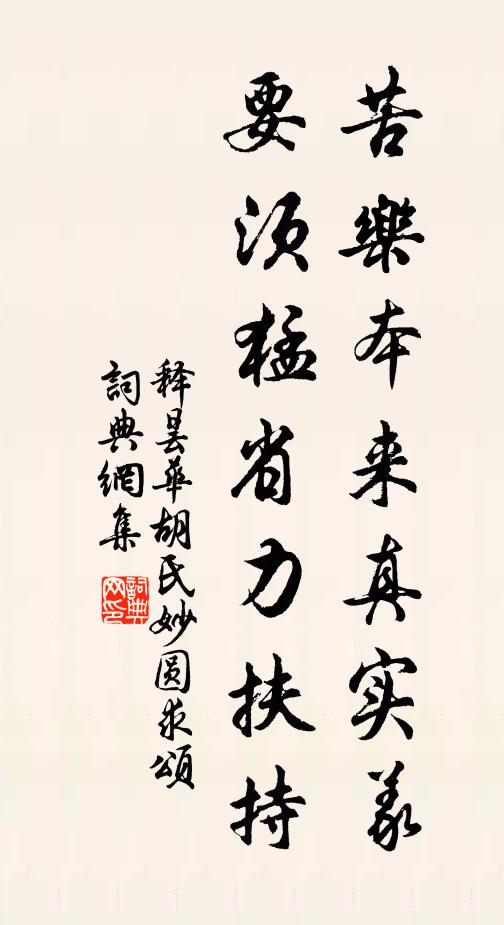 苦樂本来真实義
要须猛省力扶持
释曇華胡氏妙圆求頌
詞典網集
詞典网印